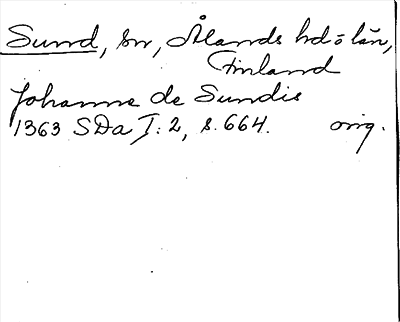 Sund, sn, Ålands hd o län,
Finland
Johanne de Sundis
1363 SDa I:2, s. 664. orig.